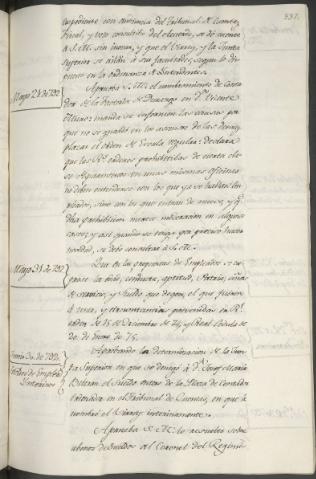 337.
expediente con audiencia del Tribunal de Cuentas,
Fiscal, y voto consultivo del electivo, se dé cuenta
á S.M. sin que, y que el Virrey, y la Junta
Superior se ciñan á sus facultades, segun lo dis-
puesto en la ordenanza de Intendentes.
Mayo 24 de 792
Aprueba S.M. el nombramiento de Conta-
dor de la de Durango en Dn. Vicente
manda se informen las causas por
que no se guardó en los ascensos de las demas
plazas el orden de Escala regular: declara
que las Rs. ordenes prohibitivas de que
se en unas mismas oficinas
no deben entenderse con los que ya se hallan em-
pleados, sino con los que entran de nuevo, y q.
dha prohibicion merece moderacion en algunos
casos, y asi quando se tenga por preciso hacer
novedad, se debe consultar á S.M.
Mayo 31 de 792
Que en las propuestas de Empleados se ex-
prese la edad, conducta, aptitud, Patria, años
de servicio, y sueldo que gozan, el que fixa
á cada, y circunstancias prevenidas en Rl.
orden de 15 de Diciembre de 74, y Real Cedula de
20 de Enero de 75.
Junio 30 de 792
Sueldos de Empleos
Interinos
Aprobando la determinacion de la Jun-
ta Superior en que se denegó á Dn. Josef Maria
Beltran el sueldo entero de la Plaza de Contador
en el Tribunal de Cuentas, en que le
nombró el Virrey interinamente.
Aprueba S.M. lo acordado sobre
abonos de sueldos al Coronel del Regimi